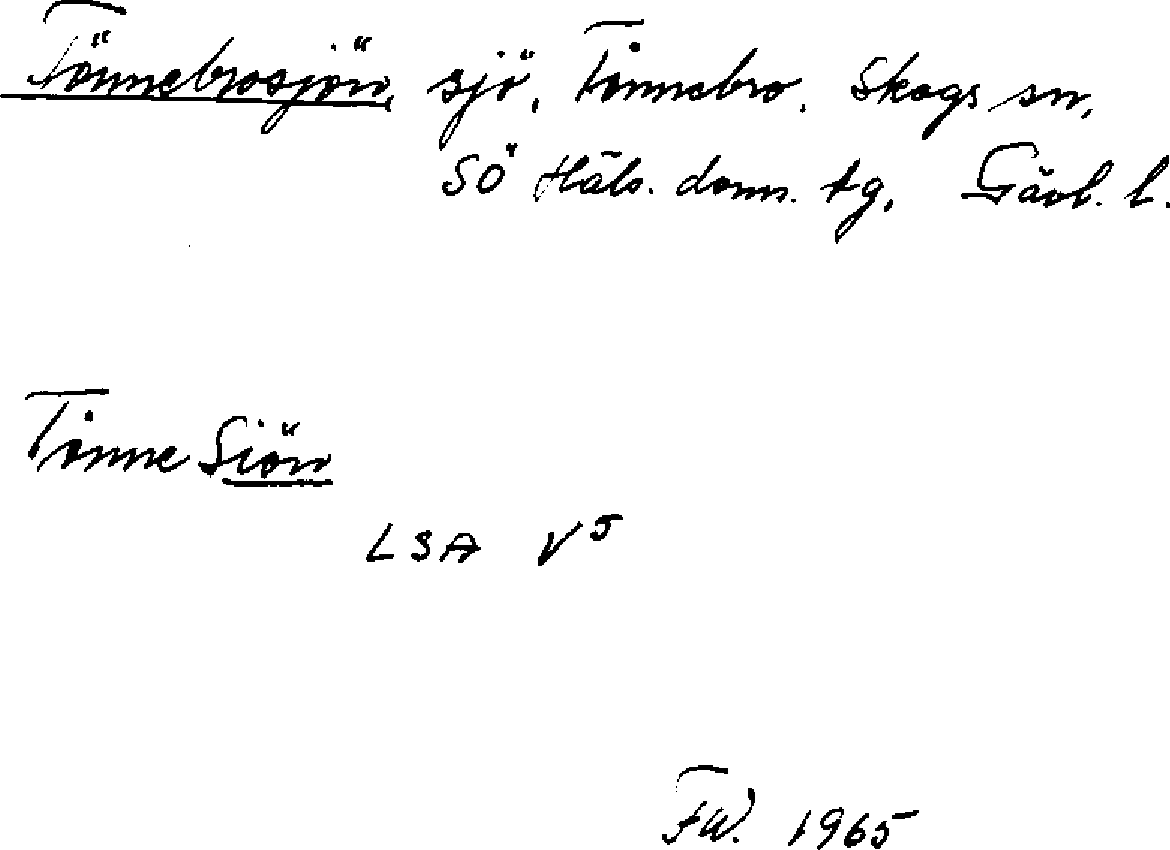 Tönnebrosjön, sjö, Tönnebro, Skogs sn,
SÖ Häls. doms. tg, Gävl. l.
Tönne Siön
LSA V5
FW. 1965